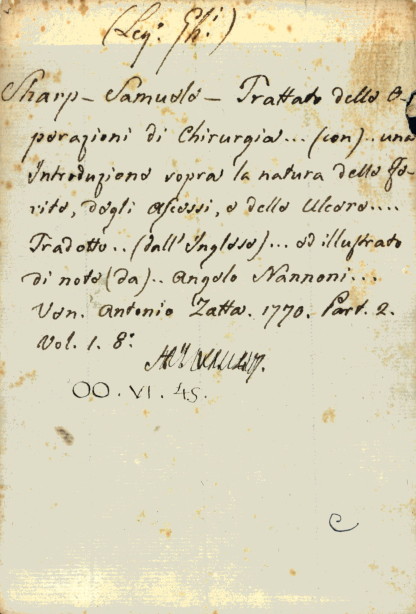 (Leg: Ghi)
Sharp - Samuele - Trattato delle O-
perazioni di Chirurgia... (con).. una
Introduzione sopra la natura delle Fe-
rite, degli Ascessi, e delle Ulcere....
Tradotto.. (dall'Inglese)... ed illustrato
di note (da).. Angelo Nannoni....
Ven. Antonio Zatta. 1770. Part. 2.
Vol. 1. 8:
OO.VI.45.
C